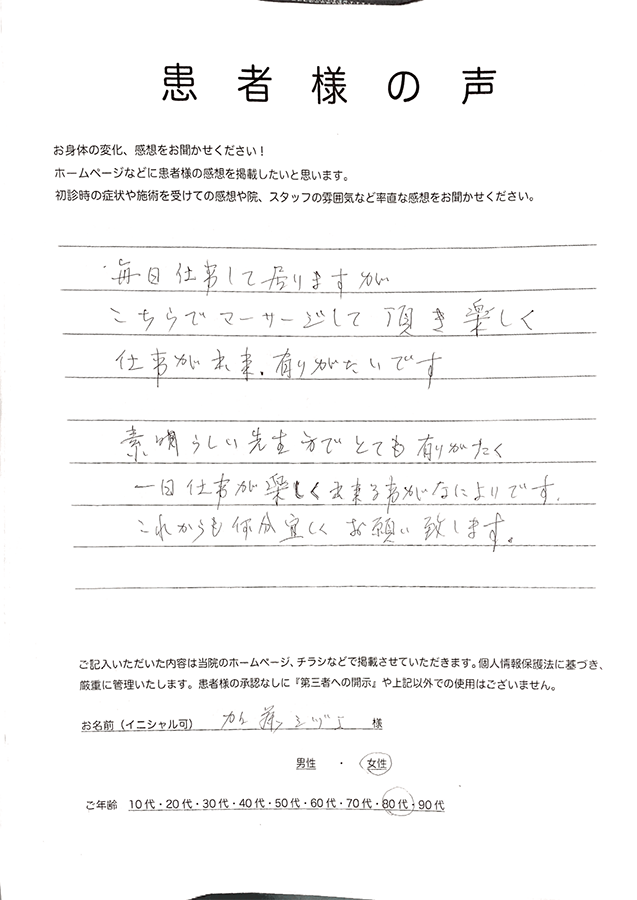 患者様の声
お身体の変化、感想をお聞かせください！
ホームページなどに患者様の感想を掲載したいと思います。
初診時の症状や施術を受けての感想や院、スタッフの雰囲気など率直な感想をお聞かせください。
毎日仕事して居りますが
こちらでマーサージして頂き楽しく
仕事が出来、有りがたいです
素晴らしい先生方でとても有りがたく
一日仕事が楽しく出来る事がなによりです。
これからも何分宜しくお願い致します。
ご記入いただいた内容は当院のホームページ、チラシなどで掲載させていただきます。個人情報保護法に基づき、
厳重に管理いたします。患者様の承認なしに『第三者への開示』や上記以外での使用はございません。
お名前（イニシャル可） 加藤シヅエ 様
男性 ・ 女性
ご年齢 10代・20代・30代・40代・50代・60代・70代・80代・90代